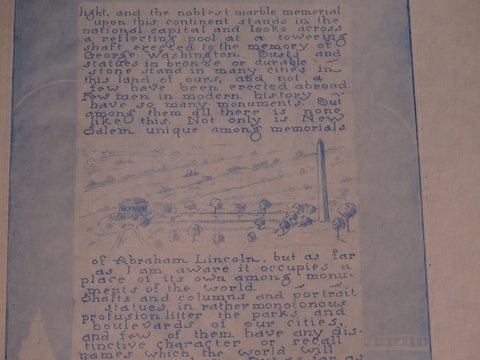 light, and the noblest marble memorial
upon this continent stands in the
national capital and looks across
a reflecting pool at a towering
shaft erected to the memory of
George Washington. Busts and
statues in bronze or durable
stone stand in many cities in
this land of ours, and not a
few have been erected abroad.
Few men in modern history
have so many monuments. But
among them all there is none
like this. Not only is New
Salem unique among memorials
of Abraham Lincoln, but as far
as I am aware it occupies a
place of its own among monu-
ments of the world.
Shafts and columns and portrait
statues in rather monotonous
profusion litter the parks and
boulevards of our cities,
and few of them have any dis-
tinctive character or recall
names which the world will